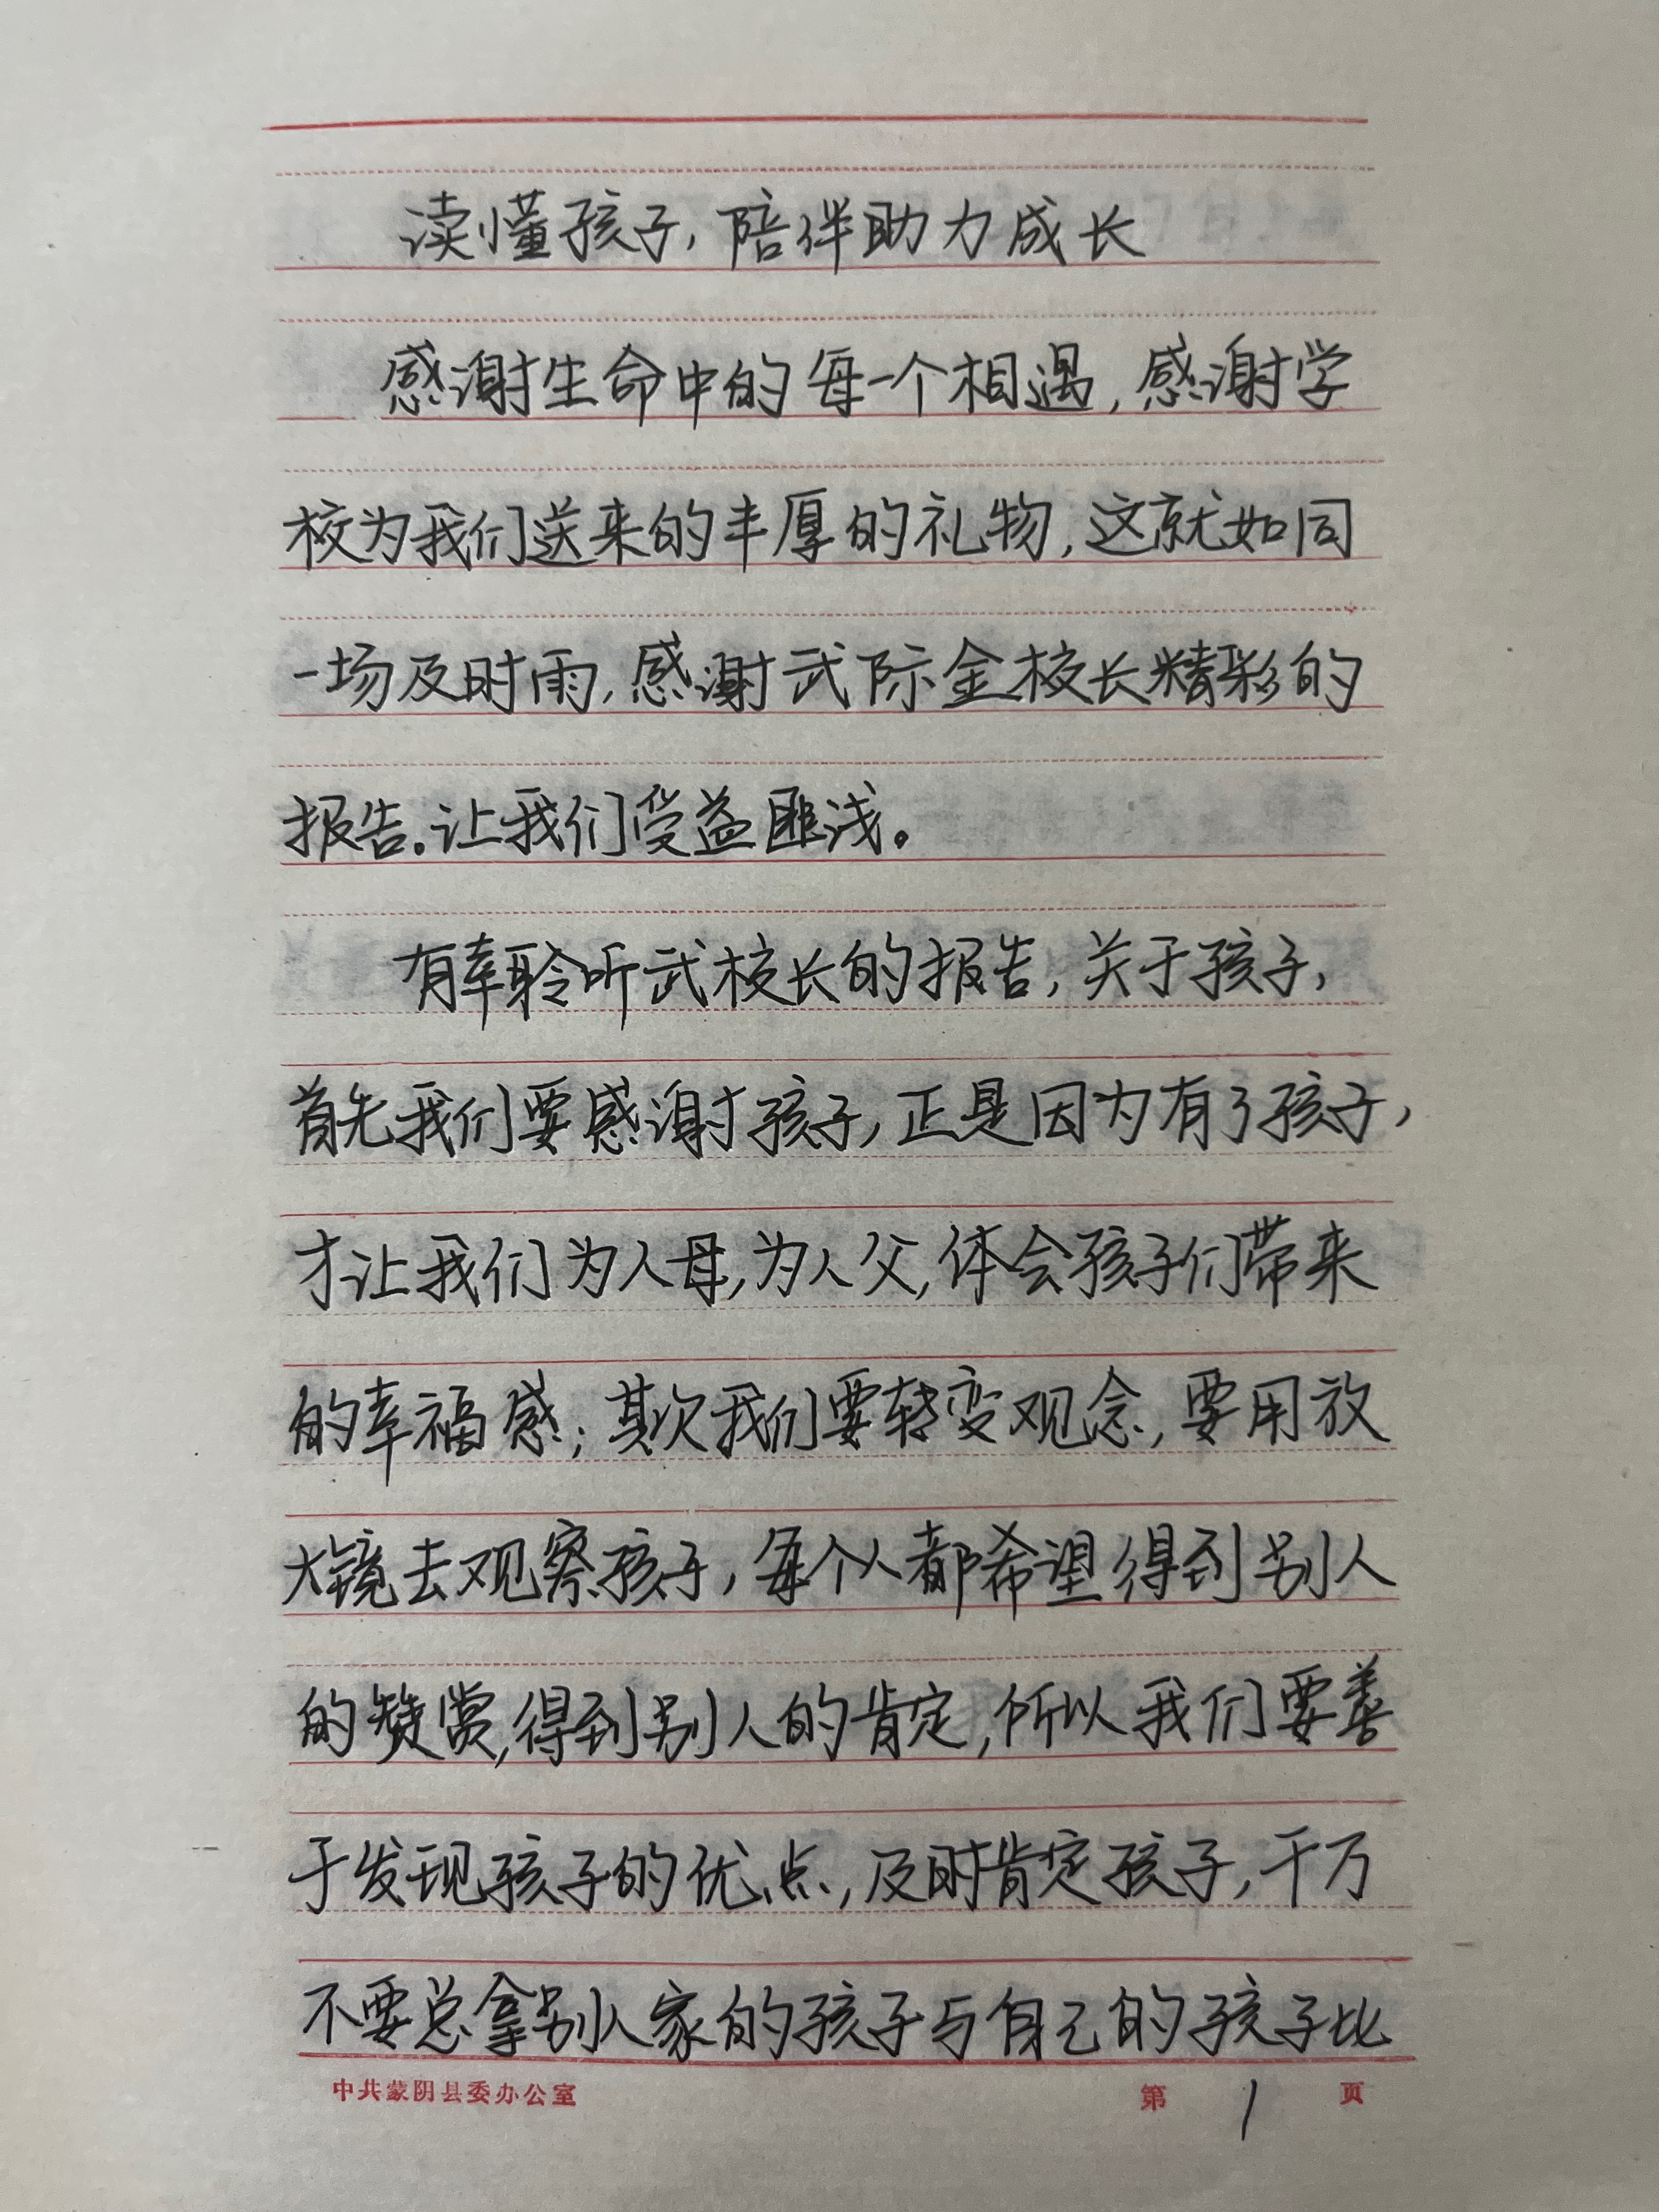 读懂孩子,陪伴助力成长
感谢生命中的每一个相遇,感谢学
校为我们送来的丰厚的礼物,这就如同
一场及时雨,感谢武际金校长精彩的
报告。让我们受益匪浅。
有幸聆听武校长的报告,关于孩子,
首先我们要感谢孩子,正是因为有了孩子,
才让我们为人母,为人父,体会孩子们带来
的幸福感;其次我们要转变观念,要用放
大镜去观察孩子,每个人都希望得到别人
的赞赏,得到别人的肯定,所以我们要善
于发现孩子的优点,及时肯定孩子,千万
不要总拿别人家的孩子与自己的孩子比
中共蒙阴县委办公室 第 1 页